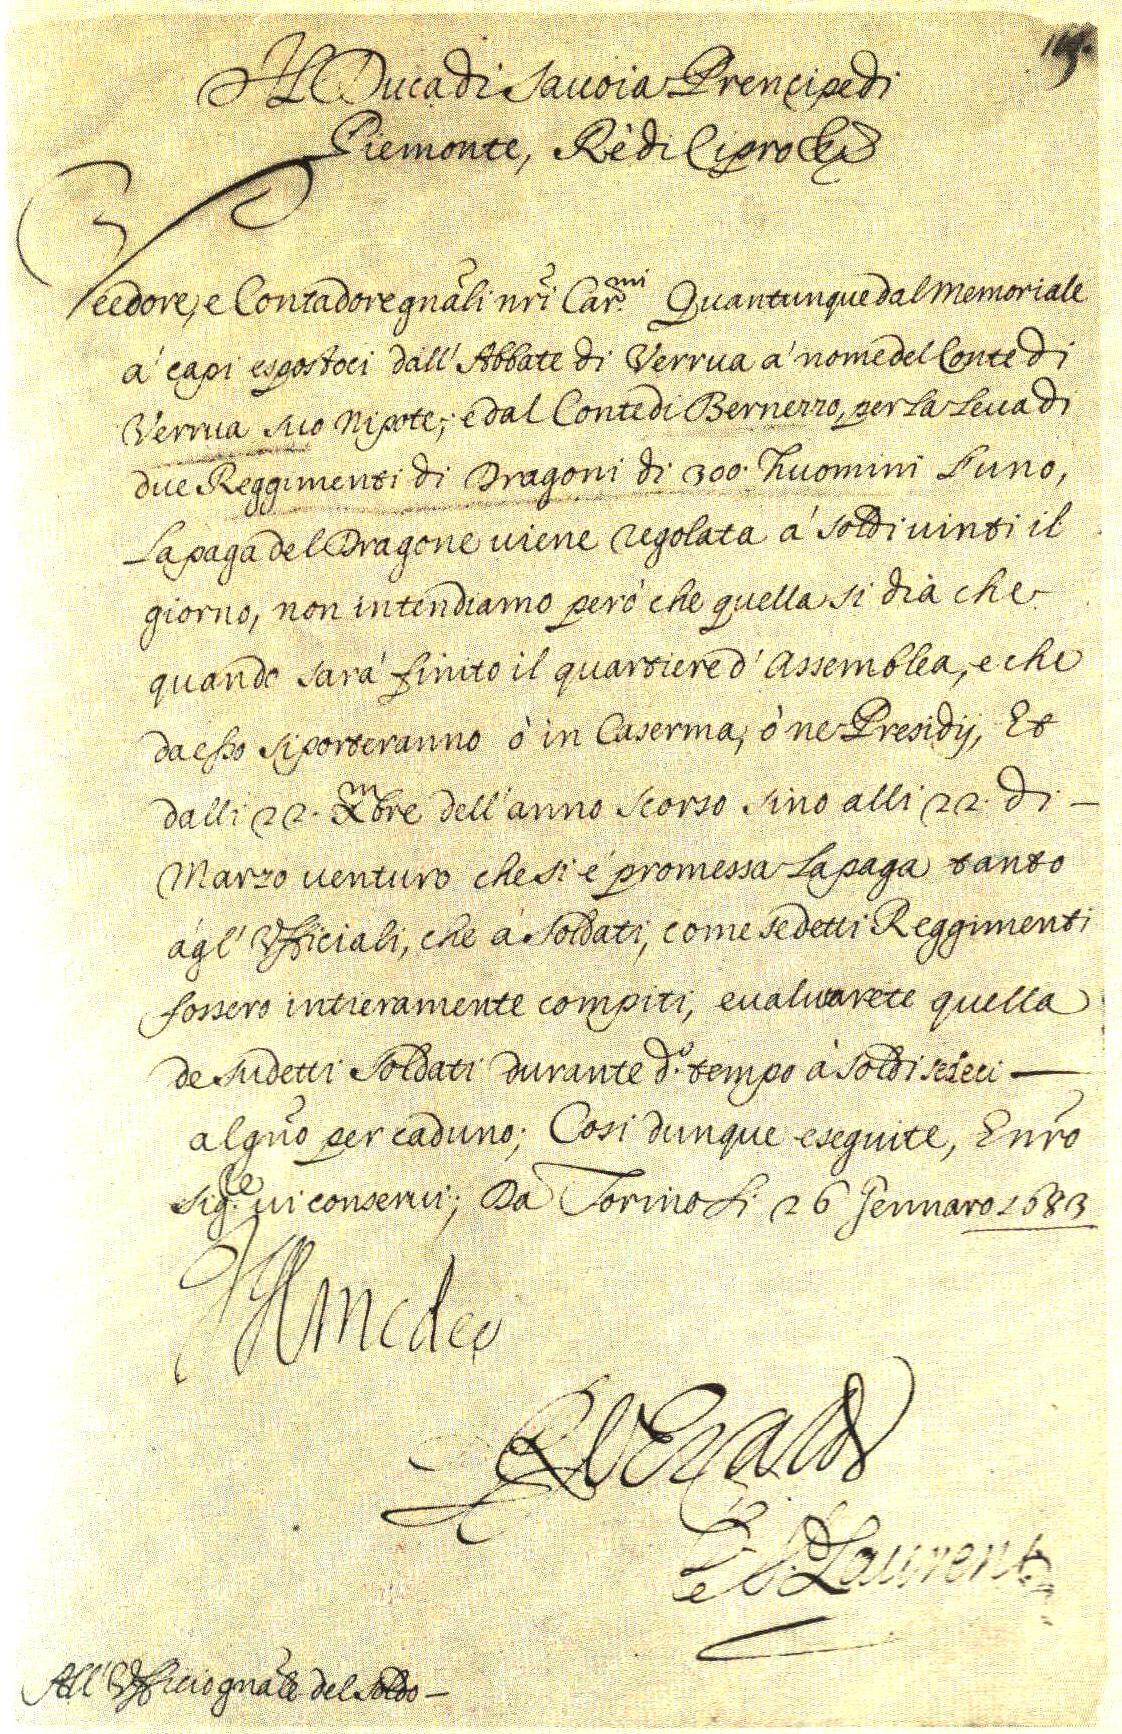 Il Duca di Savoia Prencipe di
Piemonte, Rè di Cipro &c
Veedore, e Contadore gnãli nři Car.mi Quantunque dal Memoriale
a' capi espostoci dall' Abbate di Verrua a' nome del Conte di
Verrua suo Nipote; e dal Conte di Bernezzo, per la Leva di
due Reggimenti di Dragoni di 300. huomini l'uno,
La paga del Dragone viene regolata a' soldi vinti il
giorno, non intendiamo però che quella si dia che
quando sarà finito il quartiere d' Assemblea, e che
da esso si porteranno ò in Caserma, ò ne Presidij, Et
dalli 22. Xmbre dell' anno scorso sino alli 22. di –
Marzo venturo che si é promessa La paga tanto
ágl' Ufficiali, che a' soldati, come se detti Reggimenti
fossero intieramente compiti, evaluarete quella
de sudetti soldati durante d.º tempo à soldi —
al gño per caduno; Cosi dunque eseguite, E nřo
sig.re vi conservi; Da Torino Li 26 Gennaro 1683
V Amedeo
De S. Laurent
All' Ufficio gnãle del Soldo –